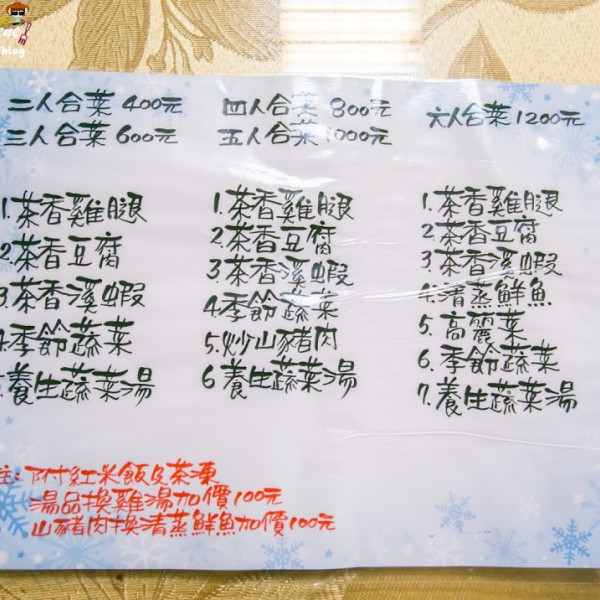 二人合菜 400元
三人合菜 600元
1.茶香雞腿
2.茶香豆腐
3.茶香溪蝦
4.季節蔬菜
養生蔬菜湯
四人合菜 800元
五人合菜 1000元
1.茶香雞腿
2.茶香豆腐
3.茶香溪蝦
4.季節蔬菜
5.炒山豬肉
6 養生蔬菜湯
六人合菜 1200元
1.茶香雞腿
2.茶香豆腐
3.茶香溪蝦
4.清蒸鮮魚
5.高麗菜
6.季節蔬菜
7.養生蔬菜湯
註:附紅米飯及茶凍
湯品換雞湯加價100元
山豬肉換清蒸鮮魚加價100元
blog